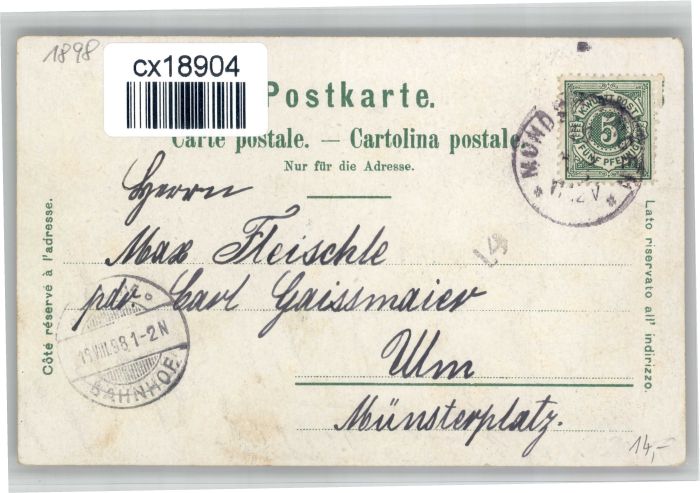 1898
cx18904
Postkarte.
Carte postale. — Cartolina postale
Nur für die Adresse.
5
FÜNF PFENNIG
Herrn
Max Fleischle
pdr. Carl Gaissmaier
Ulm
Münsterplatz.
Côté réservé à l'adresse.
Lato riservato all' indirizzo.
VIII.98.1-2N
BAHNHOF.
14
14,-